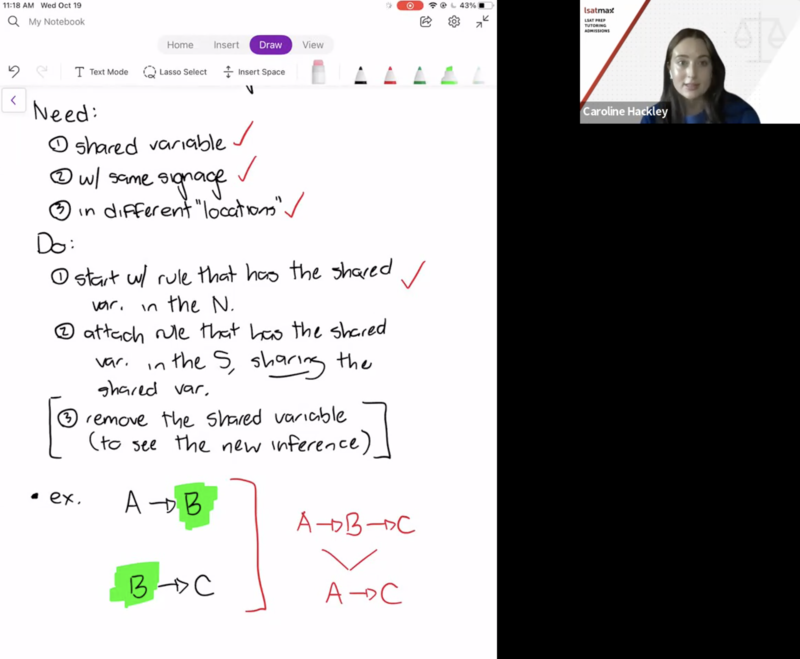 11:18 AM Wed Oct 19
43%
My Notebook
Home Insert Draw View
Text Mode Lasso Select Insert Space
Need:
① shared variable ✓
② w/ same signage ✓
③ in different "locations" ✓
Do:
① start w/ rule that has the shared ✓
var. in the N.
② attach rule that has the shared
var. in the S, sharing the
shared var.
[③ remove the shared variable
(to see the new inference)]
• ex. A → B
B → C
A → B → C
A → C
lsatmax
LSAT PREP
TUTORING
ADMISSIONS
Caroline Hackley